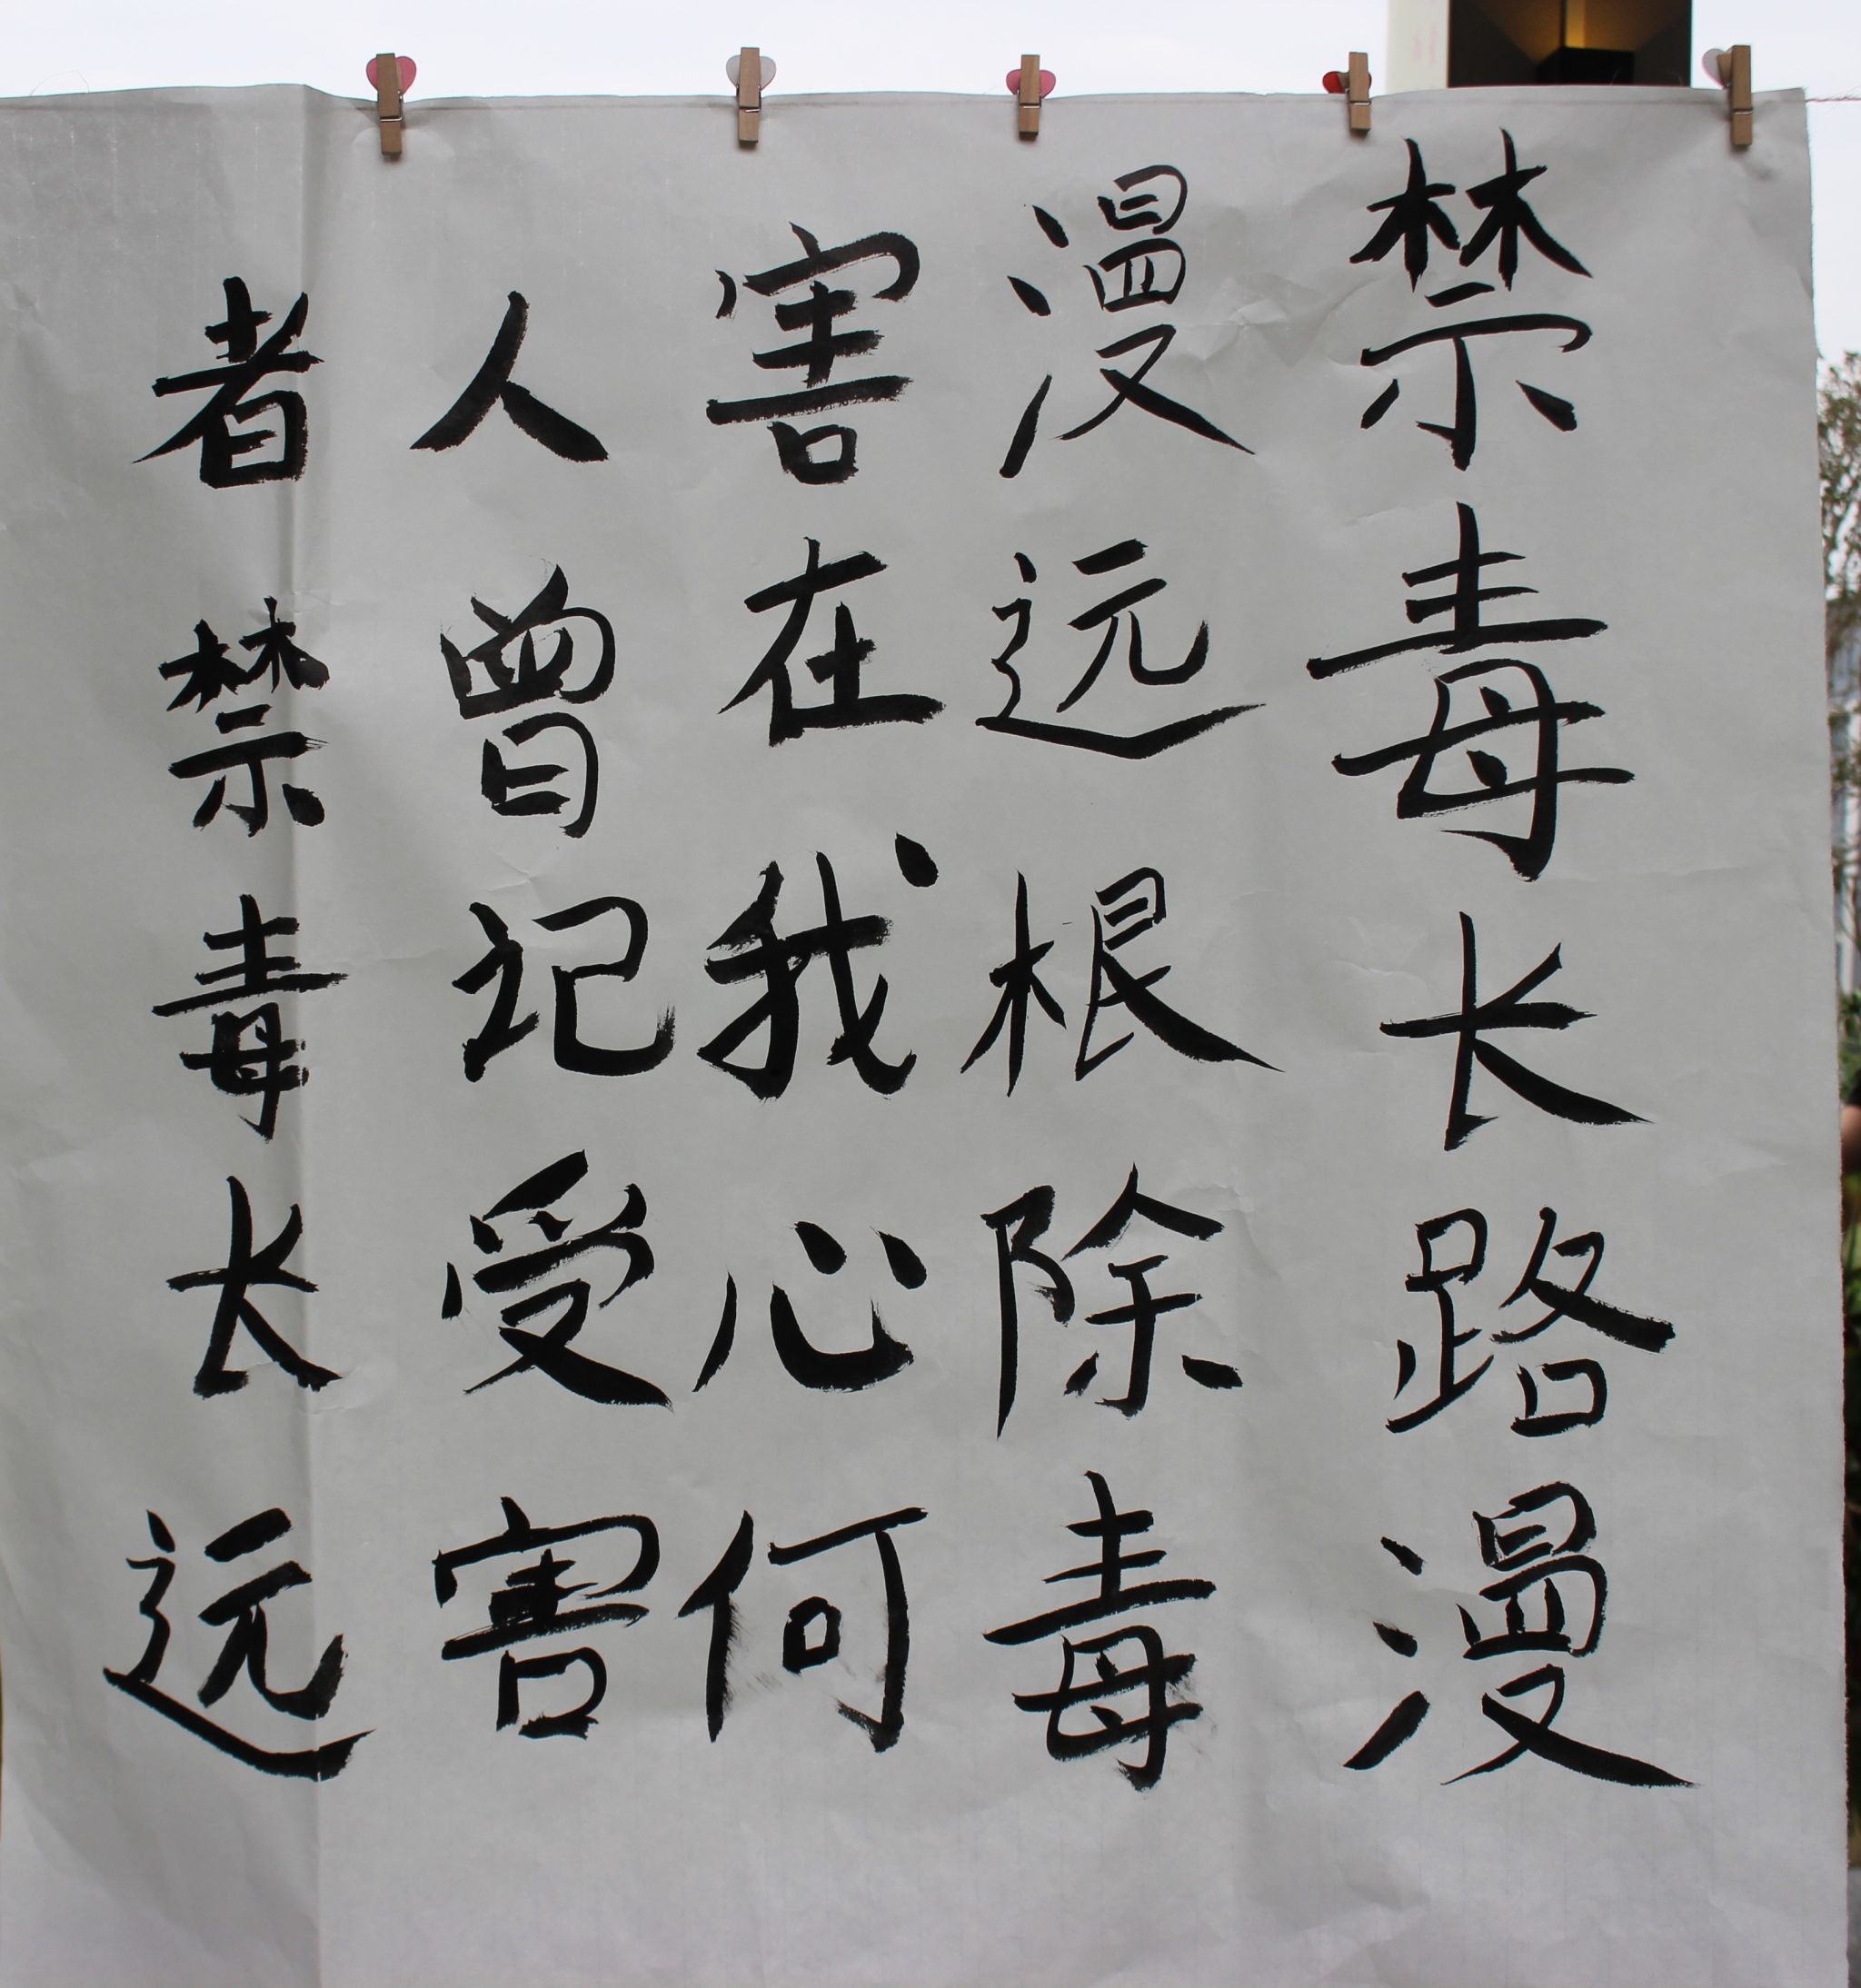 禁毒长路漫
漫远根除毒
害在我心何
人曾记受害
者禁毒长远